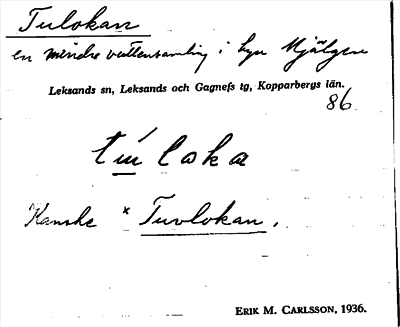 Tulokan
en mindre vattensamling i byn Hjälgen
Leksands sn, Leksands och Gagnefs tg, Kopparbergs län.
86
Kanske * Tuvlokan.
ERIK M. CARLSSON, 1936.